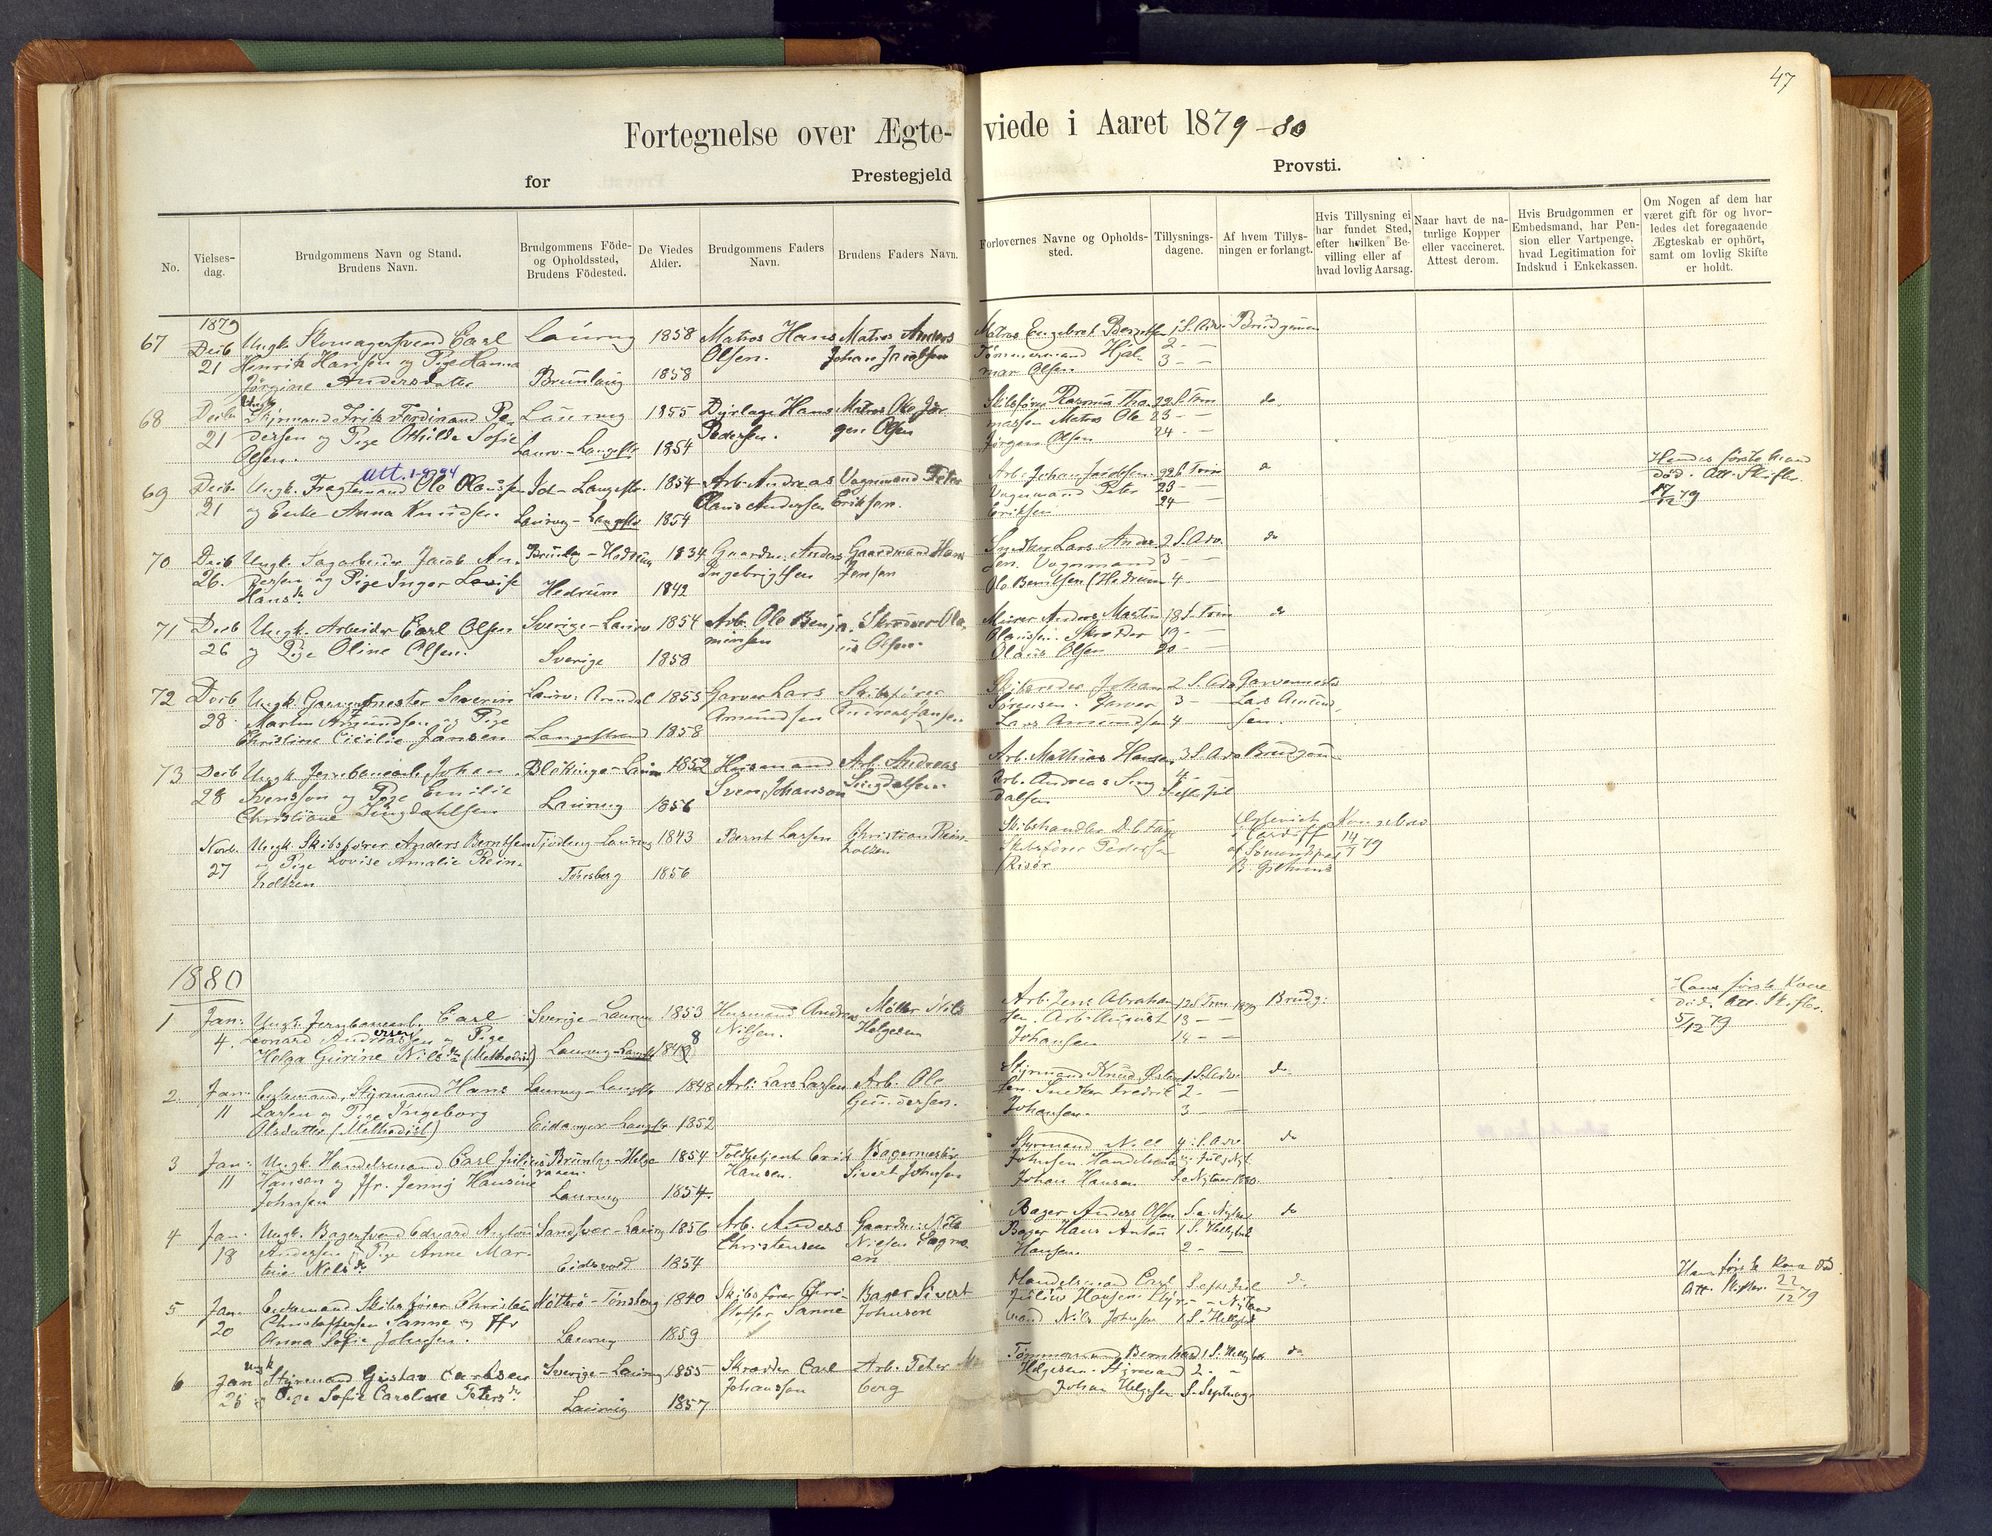 47
Fortegnelse over Ægte- viede i Aaret 1879-80
for Prestegjeld Provsti.
No.
Vielses-
dag.
Brudgommens Navn og Stand.
Brudens Navn.
Brudgommens Føde-
og Opholdssted,
Brudens Fødested.
De Viedes
Alder.
Brudgommens Faders
Navn.
Brudens Faders Navn.
Forlovernes Navne og Opholds-
sted.
Tillysnings-
dagene.
Af hvem Tillys-
ningen er forlangt.
Hvis Tillysning ei
har fundet Sted,
efter hvilken Be-
villing eller af
hvad lovlig Aarsag.
Naar havt de na-
turlige Kopper
eller vaccineret.
Attest derom.
Hvis Brudgommen er
Embedsmand, har Pen-
sion eller Vartpenge,
hvad Legitimation for
Indskud i Enkekassen.
Om Nogen af dem har
været gift för og hvor-
ledes det foregaaende
Ægteskab er ophört,
samt om lovlig Skifte
er holdt.
1879
67 Decb 21
Ungk. Skomagersvend Carl
Henrik Hansen og Pige Hanna
Jørgine Andersdatter
Laurvig 1858
Brunlaug 1858
Matros Hans
Olsen.
Matros Anders
Johan Jacobsen
Matros Engebret Berntsen
Tømmermand Hjal-
mar Olsen
1 S. Adv.
2 - -
3 - -
Brudgommen
68 Decbr 21
Ungk
Styrmand Frits Ferdinand Pe-
dersen og Pige Othilde Sofie
Olsen.
Laurvig 1855
Laurv.-Langestr. 1854
Hans
Pedersen.
Matros Ole Jør-
gen Olsen
Skibsfører Rasmus Tho-
massen Matros Ole
Jørgen Olsen
22 S. Trin
23 - -
24 - -
do
69 Decbr 21
Att. 1-9-94
Ungk. Fragtemand Ole Olaussen
og Enke Anna Knudsen
Langestr. 1854
Laurvig-Langestr 1854
Arb. Andreas
Olaus Andersen
Vognmand Peter
Eriksen.
Arb. Johan Jacobsen
Vognmand Peter
Eriksen
22 S. Trin
23 - -
24
Hendes første Mand
død. Att. Skifter.
17/12 79
70 Decb 26.
Ungk. Sagarbeider Jacob An-
dersen og Pige Inger Lovise
Hansdr
Brunlag-Hedrum 1834
Hedrum 1842
Gaardm. Anders
Ingebrigtsen
Gaardmand Hans
Jensen
Snedker Lars Ander-
sen. Vognmand
Ole Berntsen (Hedrum
2 S. Adv.
3 - -
4 -
do
71 Decb 26
Ungk. Arbeider Carl Olsen
og Pige Oline Olsen.
Sverige-Laurv 1854
Sverige 1858
Arb. Ole Benja-
minsen
Skrædder Ola-
us Olsen.
Murer Anders Martin
Olaussen. Skrædder
Olaus Olsen
18 S. Trin
19 - -
20 - -
do
72 Decb 28
Ungk. Garvermester Severin
Martin Amundsen og Pige
Christine Cicilie Jansen
Laurv. Arendal 1855
Langestrand 1858
Garver Lars
Amundsen
Skibsfører
Andreas Jansen
Skibsreder Johan
Sørensen. Garver
Lars Amundsen
2 S. Adv
3 - -
4 -
Garvermester
Lars Amund-
sen.
73 Decb 28
Ungk. Jernbanearb. Johan
Svensson og Pige Emilie
Christiane Singdahlsen
Blekinge-Laurv 1852
Laurvig 1856
Huusmand
Sven Johanson
Arb. Andreas
Singdalsen.
Arb. Mathias Hansen
Arb. Andreas Sing
dalsen
3 S. Adv
4 -
S. eft. Jul
Brudgom
Novb. 27
Ungk. Skibsfører Anders Berntsen
og Pige Lovise Amalie Rein-
holtzen
Laurvig 1843
Tønsberg 1856
Bernt Larsen
Christian Rein-
holtzen
Skibshandler
Skibsfører Pedersen
(Risør
i Cardiff
af Sømandspræst
14/7 79
1880
1 Jan: 4.
Ungk. Jernbanearb. Carl
Leonard Andreassen og Pige
ersen
Helga Gurine Nilsdr (Methodist)
Sverige-Laurvig 1853
Laurvig-Langestr 1848
8
Husmand Andreas
Nilsen.
Møller Nils
Helgesen
Arb. Jens Abraham
sen. Arb. August
Johansen
12 S Trin 1879
13 - -
14 - -
Brudg:
Hans første Kone
død. Att. Skifter.
5/12 79
2 Jan: 11
Enkemand, Styrmand Hans
Larsen og Pige Ingeborg
Olsdatter (Methodist)
Laurvig-Langestr 1848
Eidanger-Langestr 1852
Arb: Lars Larsen
Arb. Ole
Gundersen.
Styrmand Knud Østen-
sen. Snedker Fredrik
Johansen.
1 S. Adv
2 -
3 - -
do
3 Jan: 11
Ungk. Handelsmand Carl Julius
Hansen og Jfr. Jenny Hansine
Johnsen
Brunlag-Helge
raaen. 1854
Laurvig 1854.
Toldbetjent Erik
Hansen.
Bagermester
Sivert Johnsen
Styrmand Nell
Johnsen. Handelsmand
Johan Hansen
4 S. Adv
S. e Nytaar 1880.
do
4 Jan: 18
Ungk. Bagersvend Edvard Anton
Andersen og Pige Anne Mar-
thie Nilsdr
Sandsvær-Laurvig 1856
Eidsvold 1854
Arb. Anders
Christensen
Gaardm: Nils
Nilsen Bagna
en
Bager Anders Olsen
Bager Hans Anton
Hansen.
S. e. Nytaar
1 S. Helligtrek
2 - -
do
5 Jan: 20
Enkemand Skibsfører Christian
Christoffersen Sanne og Jfr
Anna Sofie Johnsen.
Nøtterø-Tønsberg 1840
Laurvig 1859
Skibsfører Chris-
toffer Sanne
Bager Sivert
Johnson
Handelsmand Carl
Julius Hansen. Styr-
mand Nils Johnsen
S. eft. Jul
- - Nytaar
1 S. Helligtrek
do
Hans første Kone død
Att. Skifter. 22/12 79
6 Jan 25
Ungk
Styrmand Gustav Carlsen
og Pige Sofie Caroline Petersdr
Sverige-Laurvig 1855
Laurvig 1857
Skrædder Carl
Johansson
Arb. Peter
berg
Tømmermand Bernhard
Helgesen. Styrmand
Johan Helgesen
1 S. Helligtrek
2 - -
S. Septuag.
do